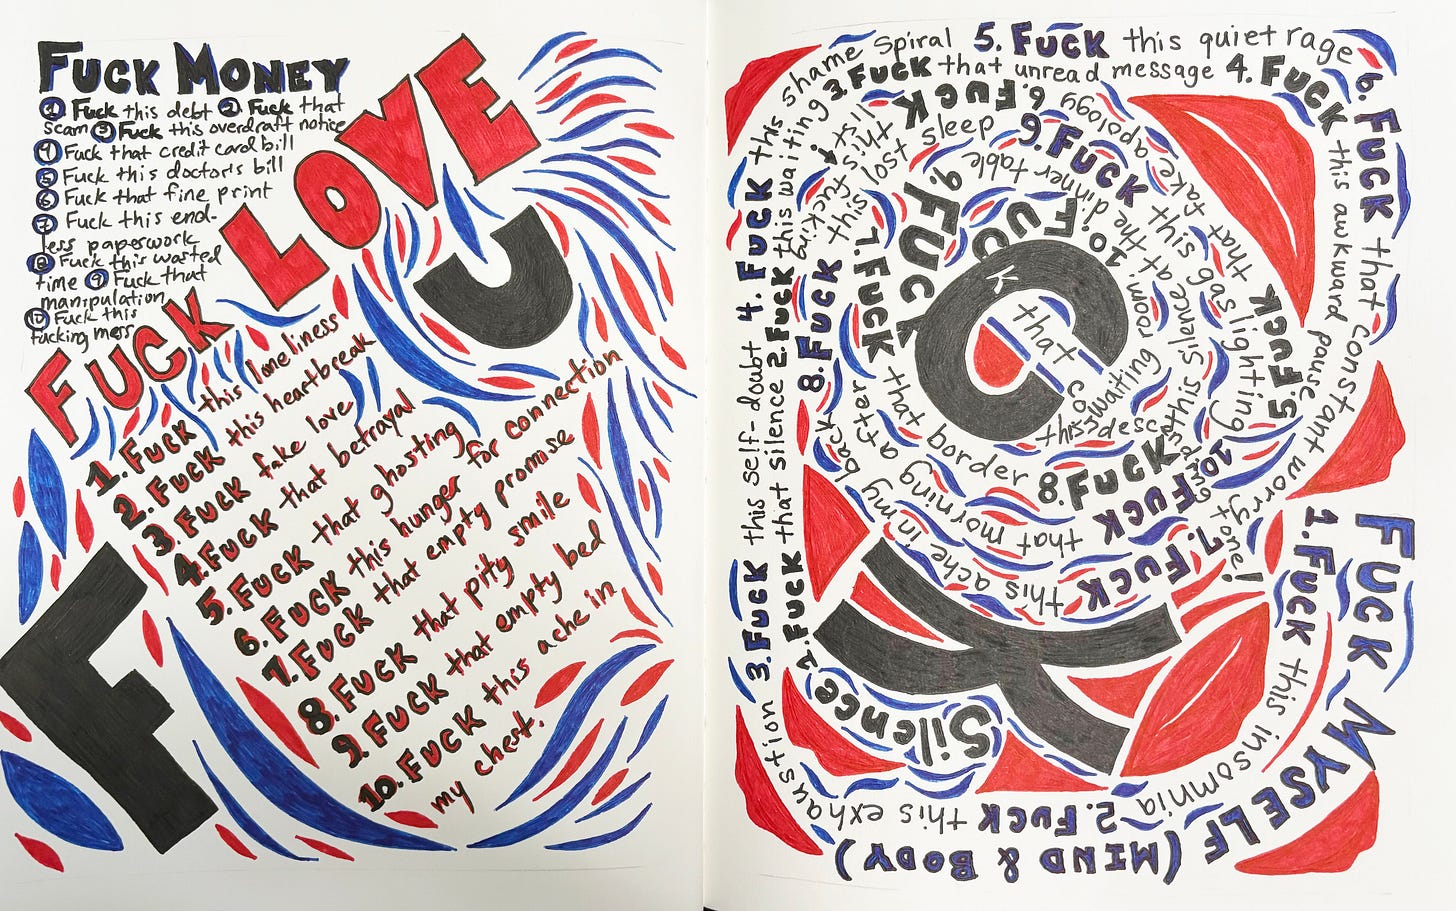 FUCK MONEY
1 Fuck this debt 2 Fuck that
scam 3 Fuck this overdraft notice
4 Fuck that credit card bill
5 Fuck this doctor's bill
6 Fuck that fine print
7 Fuck this end-
less paperwork
8 Fuck this wasted
time 9 Fuck that
manipulation
10 Fuck this
fucking mess
FUCK LOVE
1. FUCK this loneliness
2. FUCK this heartbreak
3. FUCK fake love
4. FUCK that betrayal
5. FUCK that ghosting
6. FUCK this hunger for connection
7. FUCK that empty promise
8. FUCK that pity smile
9. FUCK that empty bed
10. FUCK this ache in
my chest.
F U
C K
FUCK MYSELF (MIND & BODY)
1. FUCK this insomnia
2. FUCK this exhaustion
3. FUCK this self-doubt
4. FUCK this shame spiral
5. FUCK this quiet rage
6. FUCK that constant worry
7. FUCK this ache in my back
8. FUCK this lost sleep
9. FUCK that gas lighting
10. FUCK
FUCK Silence
2. FUCK that silence
2. FUCK this waiting
3. FUCK that unread message
4. FUCK this awkward pause
5. FUCK
6. FUCK
that fake apology
7. FUCK that border
that morning after
8. FUCK this silence at the dinner table
9. FUCK this waiting room
10. FUCK that condescending tone!